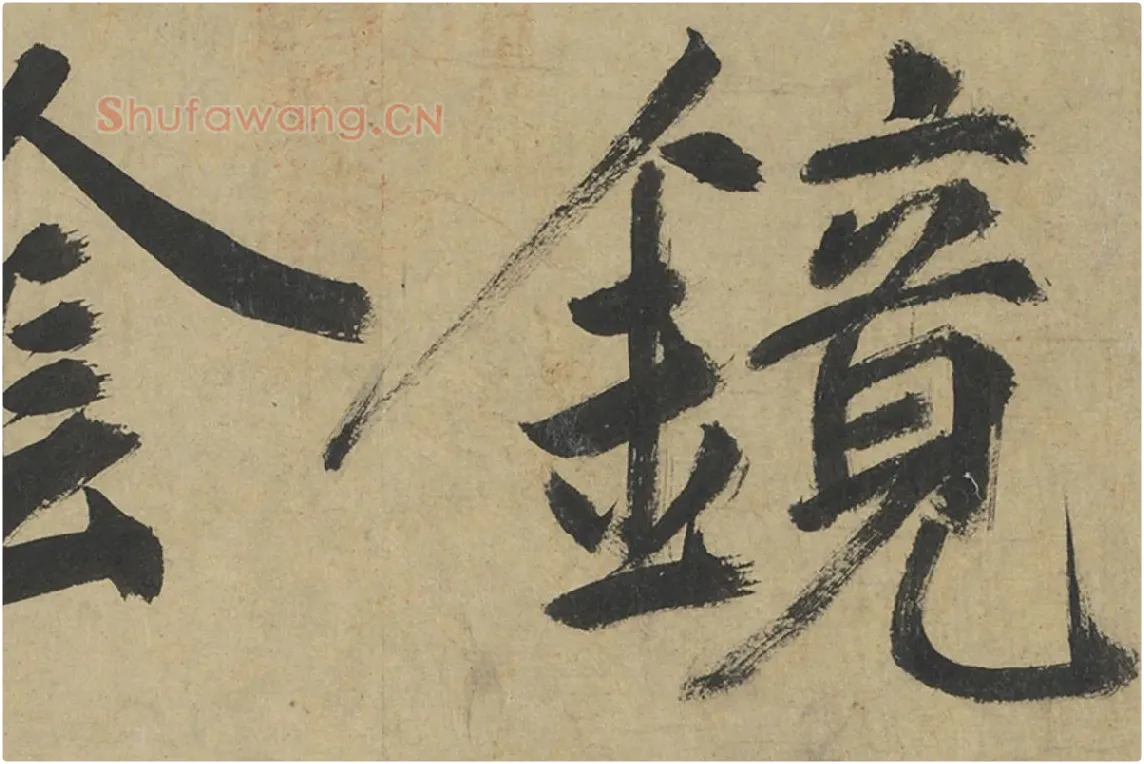 鏡
Shufawang.CN